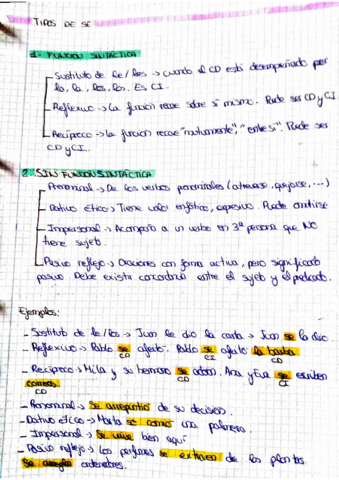 TIPOS DE SE
1- FUNCIÓN SINTÁCTICA
Sustituto de le/les → cuando el CD está desempeñado por
lo, la, los, las. Es CI.
Reflexivo → La función recae sobre sí mismo. Puede ser CD y CI.
Recíproco → la función recae "mutuamente", "entre sí". Puede ser
CD y CI.
2. SIN FUNCIÓN SINTÁCTICA
Pronominal → De los verbos pronominales (atreverse, quejarse, ...)
Dativo ético → Tiene valor enfático, expresivo. Puede omitirse
Impersonal → Acompaña a un verbo en 3ª persona que NO
tiene sujeto
Pasivo reflejo → Oraciones con forma activa, pero significado
pasivo. Debe existir concordancia entre el sujeto y el predicado.
Ejemplos:
- Sustituto de le/les → Juan le dio la carta → Juan se la dio.
- Reflexivo → Pablo se afeitó. Pablo se afeitó la barba
CD CI CD
- Recíproco → Mila y su hermano se adoran. Ana y Eva se escriben
CD CI
correos
CD
- Pronominal → Se arrepintió de su decisión.
- Dativo ético → Marta se comió una palmera.
- Impersonal → Se vive bien aquí
- Pasivo reflejo → Los perfumes se extraen de las plantas.
Se arreglan ordenadores.